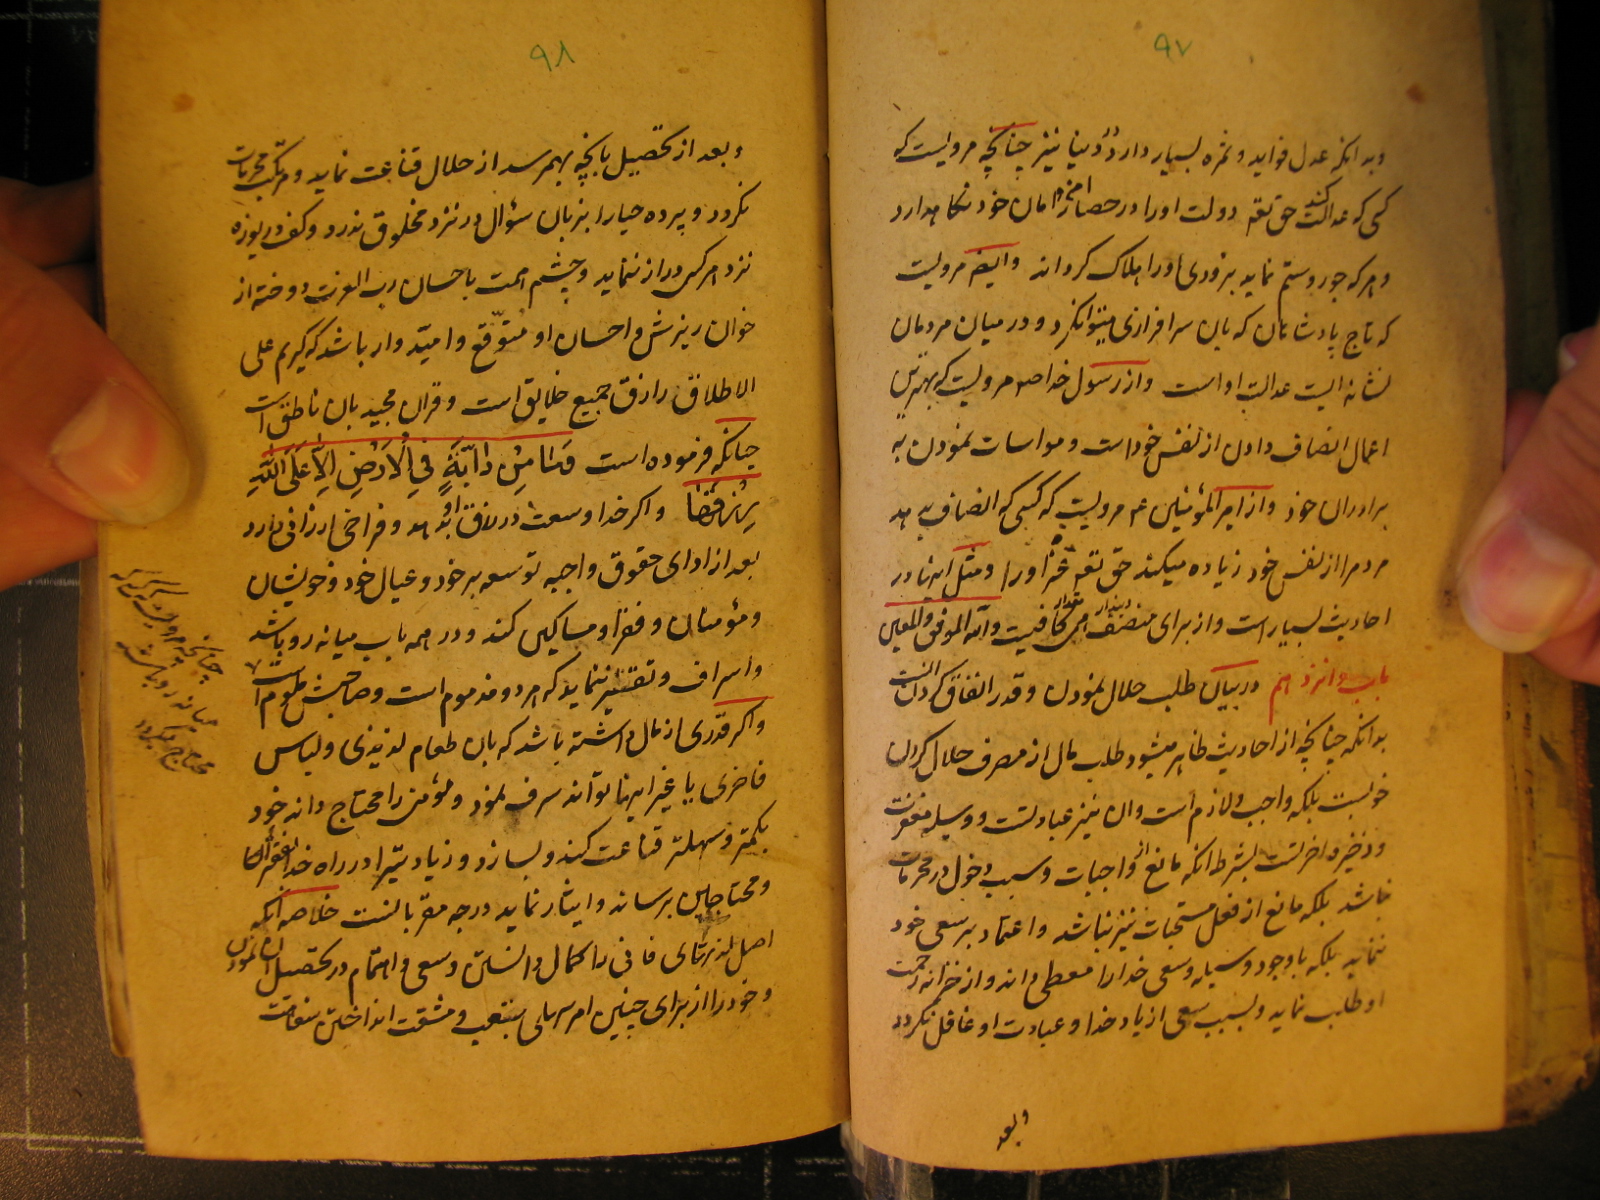 ۹۷
وبدانکه عدل فواید و ثمره بسیار دارد در دنیا نیز چنانچه مرویست که
کسی که عدالت کند حق تعالی دولت او را در حصار امان خود نگاه دارد
و هر که جور و ستم نماید بزودی او را هلاک گرداند وایضا مرویست
که تاج پادشاهان که بان سرافرازی میتوانکرد و در میان مردمان
نشانه ایست عدالت او است واز رسول خدا ص مرویست که بهترین
اعمال انصاف دادن از نفس خود است و مواسات نمودن به
برادران خود واز امیر المؤمنین ع مرویست که کسی که انصاف بدهد
مردمرا از نفس خود زیاده میکند حق تعالی عزّ او را ومثل اینها در
احادیث بسیار است و از برای منصف دیندار این مقدار کافیست والله الموفق والمعین
باب دوانزدهم در بیان طلب حلال نمودن و قدر انفاق کردن انست
بدانکه چنانچه از احادیث ظاهر میشود طلب مال از مصرف حلال کردن
خوبست بلکه واجب و لازم است و ان نیز عبادتست و وسیله مغفرت
و ذخیره اخرتست بشرط انکه مانع از واجبات و سبب دخول در محرمات
نباشد بلکه مانع از فعل مستحبات نیز نباشد و اعتماد بر سعی خود
ننماید بلکه باوجود وسیله و سعی خدا را معطی داند و از خزانه رحمت
او طلب نماید و بسبب سعی از یاد خدا و عبادت او غافل نگردد
وبعد
۹۸
وبعد از تحصیل بانچه بهمرسد از حلال قناعت نماید و مرتکب محرمات
نگردد و پرده حیا را بزبان سؤال در نزد مخلوق ندرد و کف دریوزه
نزد هرکس دراز ننماید و چشم همت باحسان رب العزت دوخته از
خوان ریزش و احسان او متوقع و امیدوار باشد که کریم علی
الاطلاق رازق جمیع خلایق است و قران مجید بان ناطق است
چنانکه فرموده است وَمَا مِنْ دَابَّةٍ فِي الْأَرْضِ إِلَّا عَلَى اللَّهِ
رِزْقُهَا و اگر خدا وسعت در رزق او بدهد و فراخی ارزانی دارد
بعد از ادای حقوق واجبه توسعه بر خود و عیال خود و خویشان
و مؤمنان و فقرا و مساکین کند و در همه باب میانه رو باشد
و اسراف و تقتیر ننماید که هر دو مذموم است و صاحبش ملوم است
و اگر قدری از مال داشته باشد که بان طعام لذیذی و لباس
فاخری یا غیر اینها تواند صرف نمود و مؤمن را محتاج داند خود
بکمتر و سهلتر قناعت کند و بسازد و زیادتیرا در راه خدا بفقرا
و محتاجان برساند و ایثار نماید درجه مقربانست خلاصه انکه
اصل لذتهای فانی را کمال دانستن و سعی و اهتمام در تحصیل ان نمودن
و خود را از برای چنین امر سهلی بتعب و مشقت انداختن سفاهت
چنانچه مرویست که هر که
میانه رو باشد
محتاج نگردد